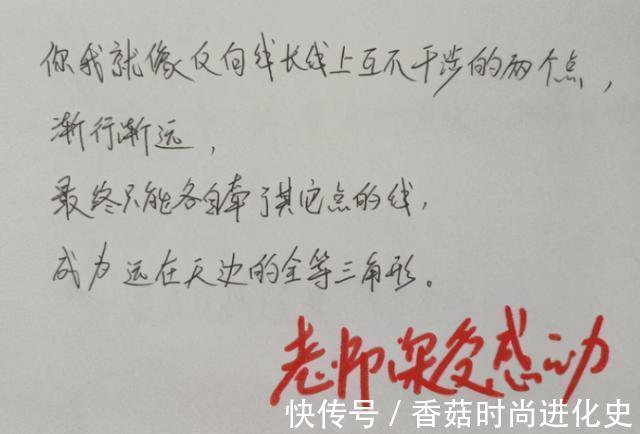 你我就像反向线长线上互不干涉的两个点，
渐行渐远，
最终只能各自牵了其它点的线，
成为远在天边的全等三角形。
老师深受感动
快传号 / 香菇时尚进化史